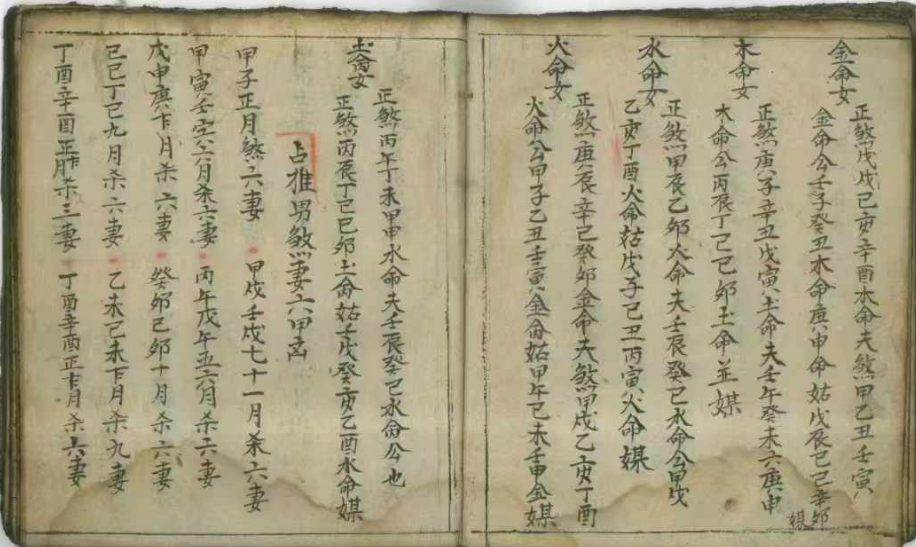 金命女
正煞戊戌己亥辛酉木命夫煞甲乙丑壬寅
金命公壬子癸丑木命庚申命姑戊辰己己辛卯
媒
木命女
正煞庚子辛丑戊寅土命夫壬午癸未六庚申
木命公丙辰丁己己卯土命並媒
水命女
正煞甲辰乙卯火命夫壬辰癸己水命公甲戊
乙亥丁酉火命姑戊子己丑丙寅火命媒
火命女
正煞庚辰辛己癸卯金命夫煞甲戌乙亥丁酉
火命公甲子乙丑壬寅金命姑甲午己未壬申金媒
土命女
正煞丙午未甲申水命夫壬辰癸己水命公也
正煞丙辰丁己己卯土命姑壬戊癸亥乙酉水命媒
占推男煞妻六甲
甲子正月煞六妻 甲戌壬戌七十一月杀六妻
甲寅壬六月杀六妻 丙午戊午五六月杀六妻
戊申庚下月杀六妻 癸卯己卯十月杀六妻
己己丁己九月杀六妻 乙未己未下月杀九妻
丁酉辛酉正杀三妻 丁酉辛酉正月杀六妻